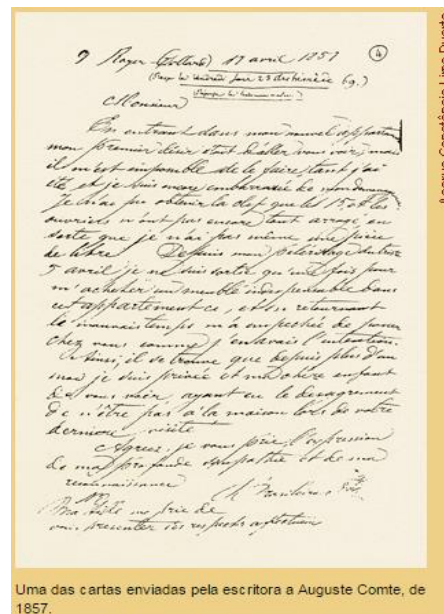 9 Royer-Collard 17 avril 1857
4
Monsieur
En entrant dans mon nouvel appartem
mon premier désir était d'aller vous voir, mais
il m'est impossible de le faire, tant j'ai
été et je suis encore embarrassée de mon
Je n'ai pu obtenir la clef que le 15, et les
ouvriers n'ont pas encore tout arrangé, en
sorte que je n'ai pas même une pièce
de libre. Depuis mon pèlerinage du
5 avril je ne suis sortie qu'une fois pour
m'acheter un meuble indispensable dans
cet appartement ci, et en retournant
le mauvais temps m'a empêchée de passer
chez vous comme j'en avais l'intention.
Ainsi, il se trouve que depuis plus d'un
mois je suis privée et ma chère enfant
de vous voir, ayant eu le désagrément
de n'être pas à la maison lors de votre
dernière visite.
Agréez, je vous prie, l'expression
de ma profonde sympathie et de ma
reconnaissance
Brasileira
Ma fille me prie de
vous présenter ses respects
Uma das cartas enviadas pela escritora a Auguste Comte, de
1857.